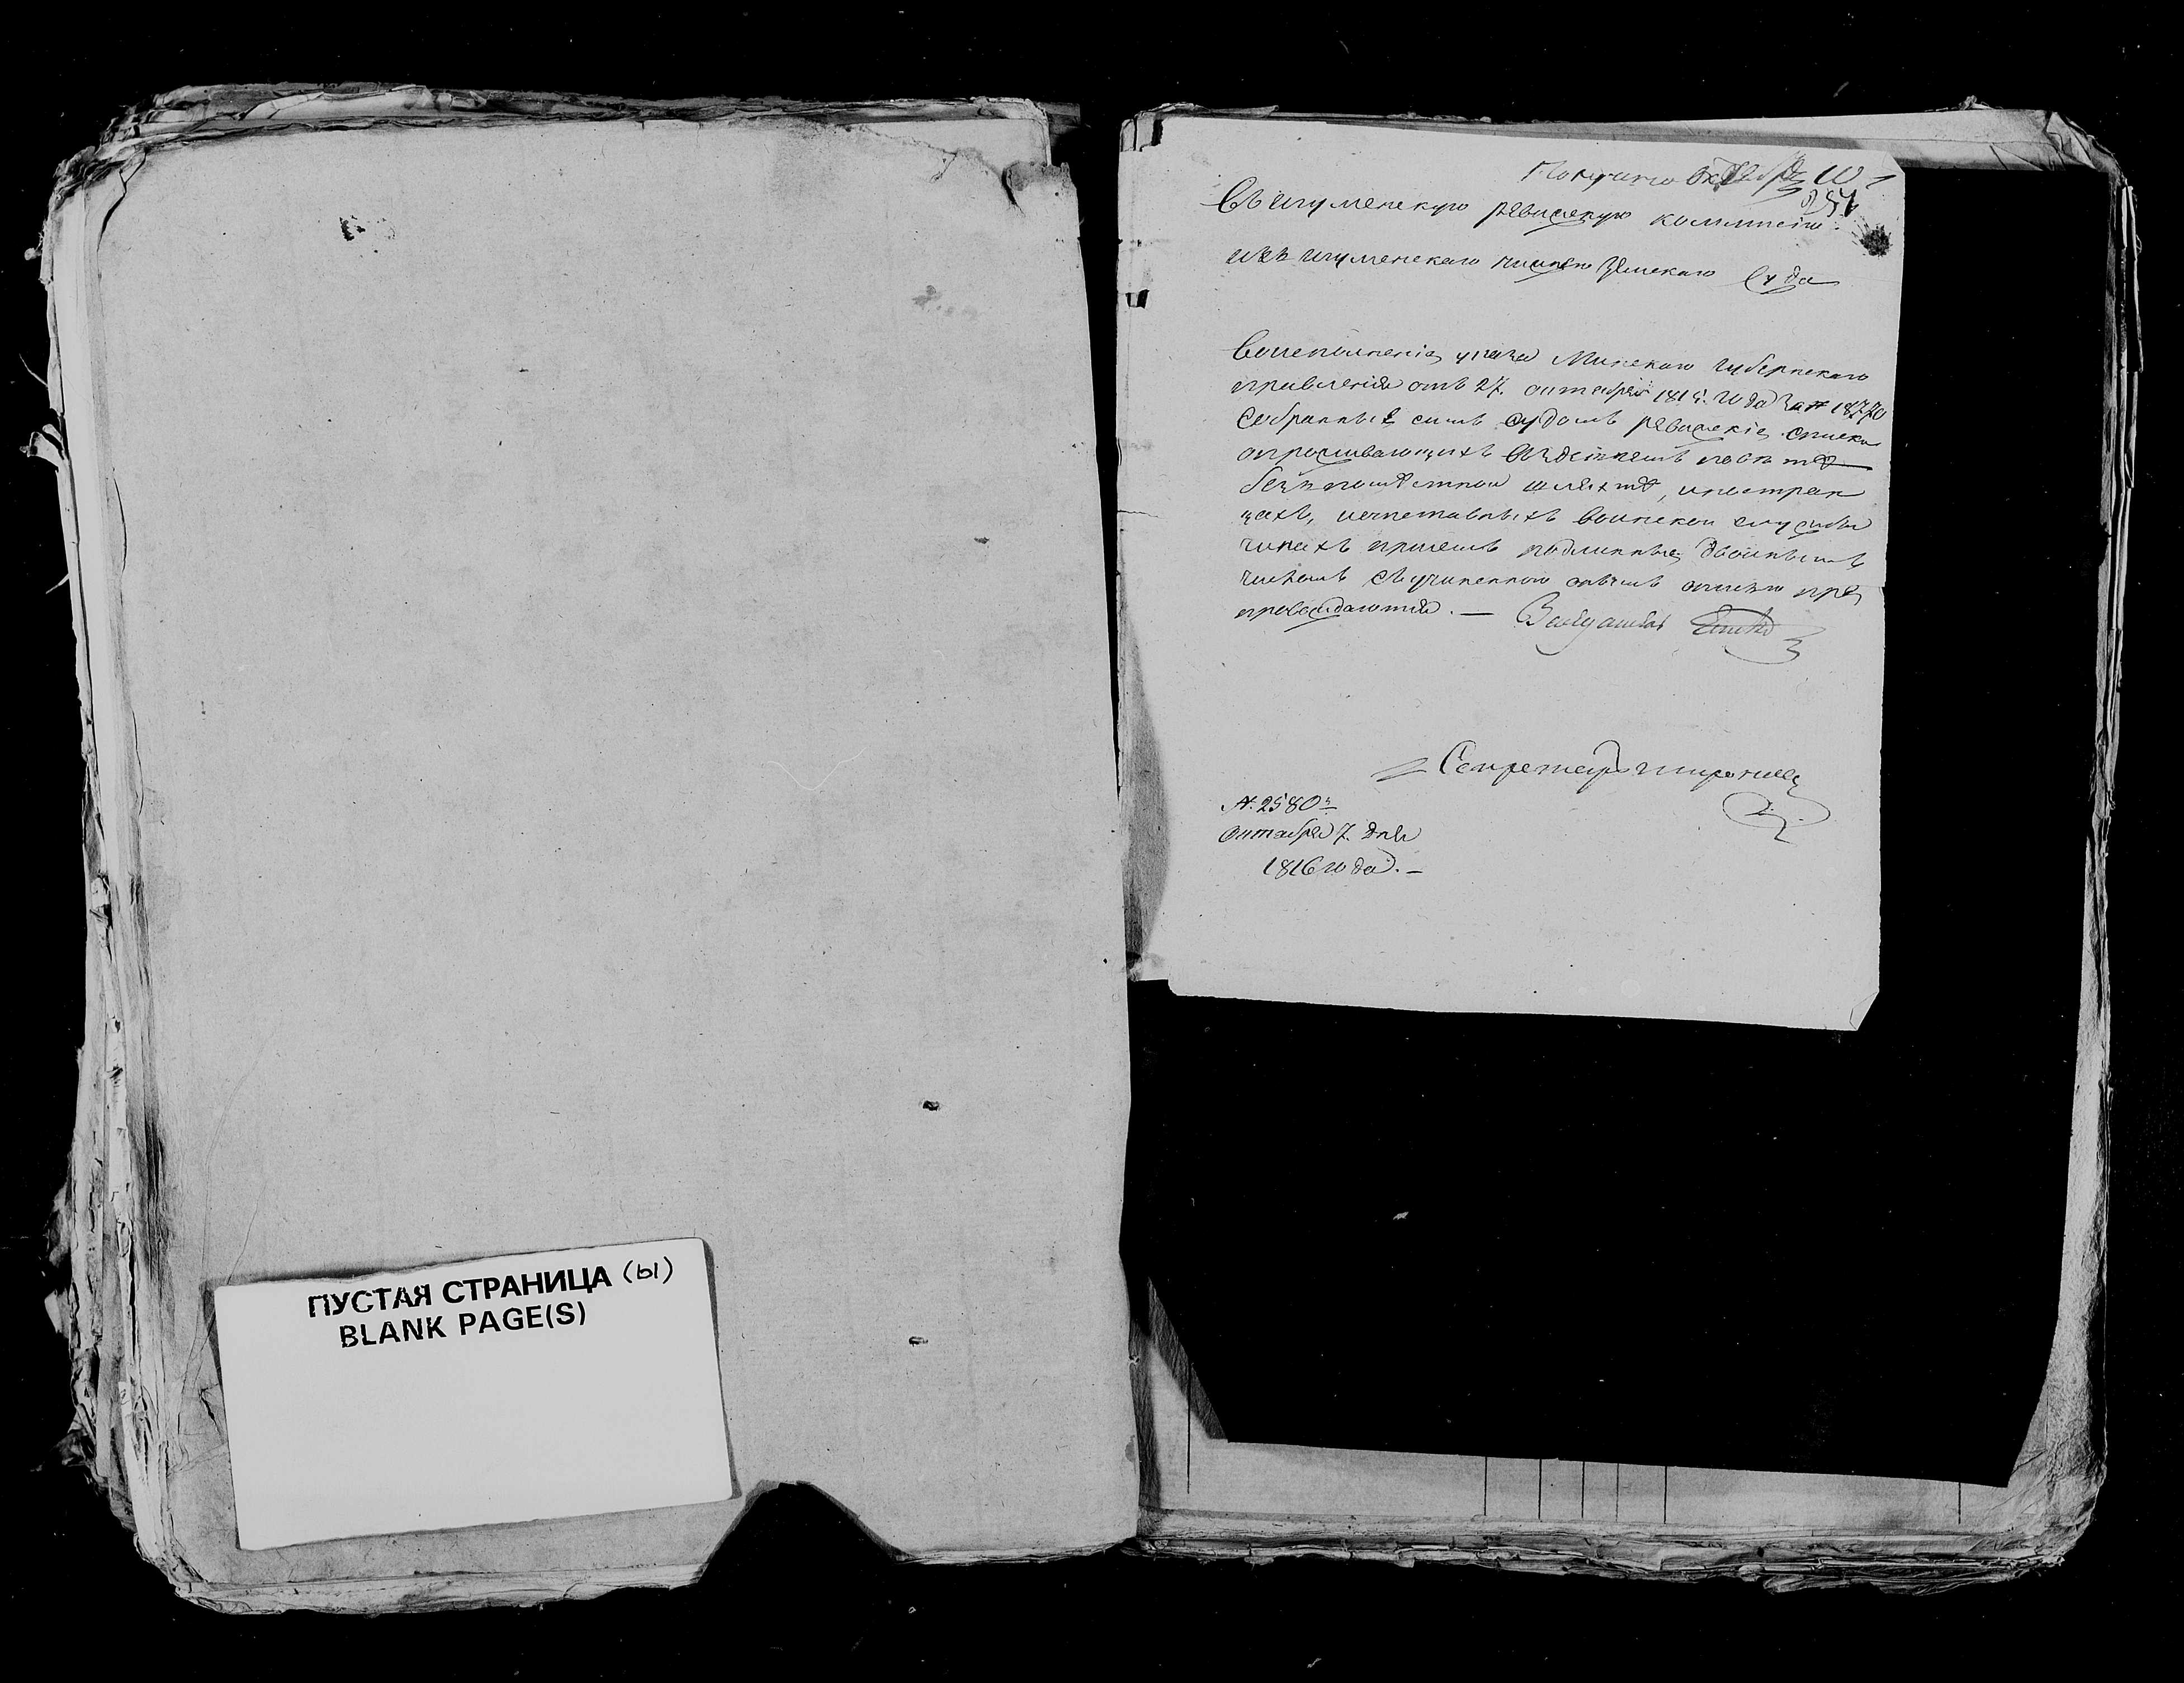 ПУСТАЯ СТРАНИЦА (ы)
BLANK PAGE(S)
Получено
254
Въ игуменскую ревискую коммисію.
изъ игуменскаго нижнего Земскаго Суда
Воисполненіе указа Минскаго губернскаго
правленія отъ 27. октября 1815. года За № 18770
Собранные симъ судомъ ревиские списки
опроживающихъ вздешнемъ поветѣ
безпоместной шляхтѣ, иностран
цахъ, исчетавныхъ воинской службы
чинахъ присемъ подлинные двойнымъ
числомъ съучиненною онымъ описью пре
провождаются. —
Секретарь
№. 2580й
Октября 7. дня
1816 года. —